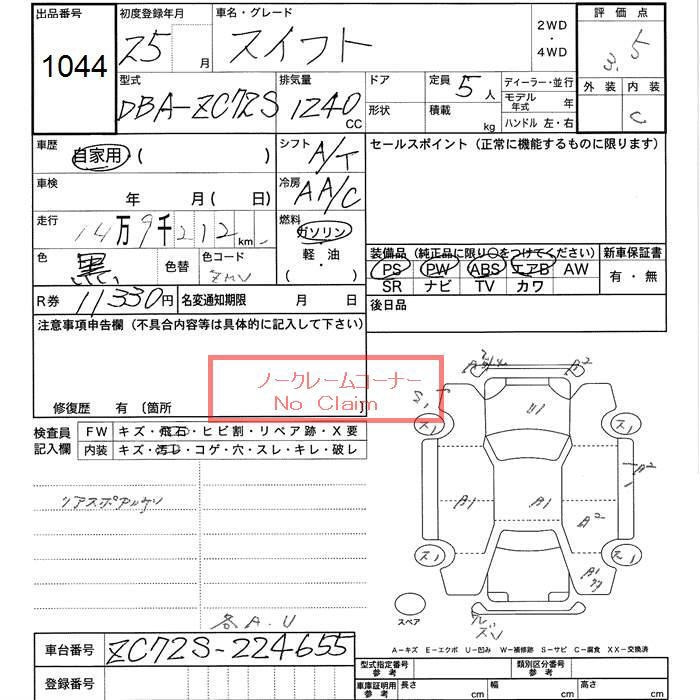 出品番号 初度登録年月 車名・グレード 2WD ・ 4WD 評価点
1044 25 月 スイフト 3.5
型式 排気量 ドア 定員 5人 ディーラー・並行 外装 内装
DBA-ZC72S 1240 CC 形状 積載 kg モデル年式 年 C
ハンドル 左・右
車歴 自家用・( ) シフト A/T セールスポイント（正常に機能するものに限ります）
車検 年 月( 日) 冷房 AA/C
走行 14万9千212km 燃料 ガソリン
軽・油
・
( )
色 黒 色替 色コード ZMV
装備品（純正品に限り○をつけてください） 新車保証書
PS PW ABS エアB AW 有・無
SR ナビ TV カワ
R券 11330円 名変通知期限 月 日 後日品
注意事項申告欄（不具合内容等は具体的に記入して下さい）
ノークレームコーナー
No Claim
修復歴 有〔箇所 〕
検査員記入欄 FW キズ・飛石・ヒビ割・リペア跡・X要
内装 キズ・汚レ・コゲ・穴・スレ・キレ・破レ
A2
S1
ス1 U1 ス1
A2
A1 A1 A2
ス1 ス1
A1
スペア
各A.U
A－キズ E－エクボ U－凹み W－補修跡 S－サビ C－腐食 XX－交換済
車台番号 ZC72S-224655
登録番号
型式指定番号 参考 類別区分番号 参考
車庫証明用 参考 長さ cm 幅 cm 高さ cm